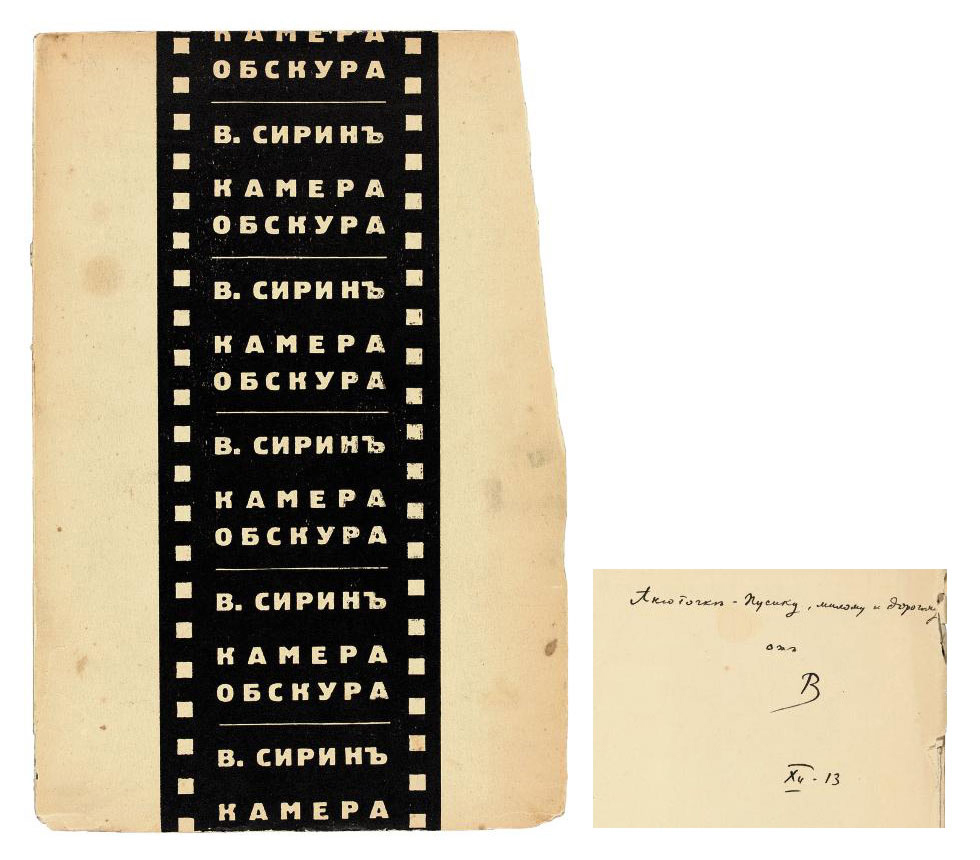 КАМЕРА
ОБСКУРА
В. СИРИНЪ
КАМЕРА
ОБСКУРА
В. СИРИНЪ
КАМЕРА
ОБСКУРА
В. СИРИНЪ
КАМЕРА
ОБСКУРА
В. СИРИНЪ
КАМЕРА
ОБСКУРА
В. СИРИНЪ
КАМЕРА
Анюточкѣ - Пусику, милому и дорогому
отъ
В
XII - 13